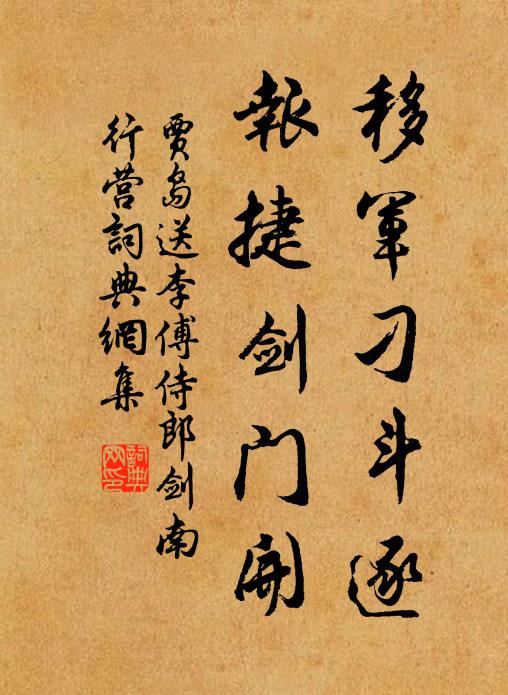 移軍刁斗逐
報捷劍门開
賈島送李傅侍郎劍南
行营詞典網集
詞典
网印